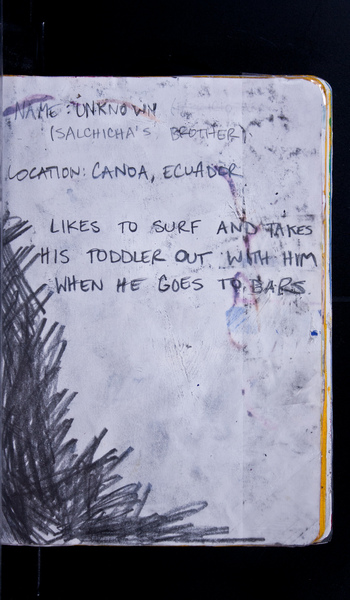 NAME: UNKNOWN
(SALCHICHA'S BROTHER)
LOCATION: CANOA, ECUADOR
LIKES TO SURF AND TAKES
HIS TODDLER OUT WITH HIM
WHEN HE GOES TO BARS